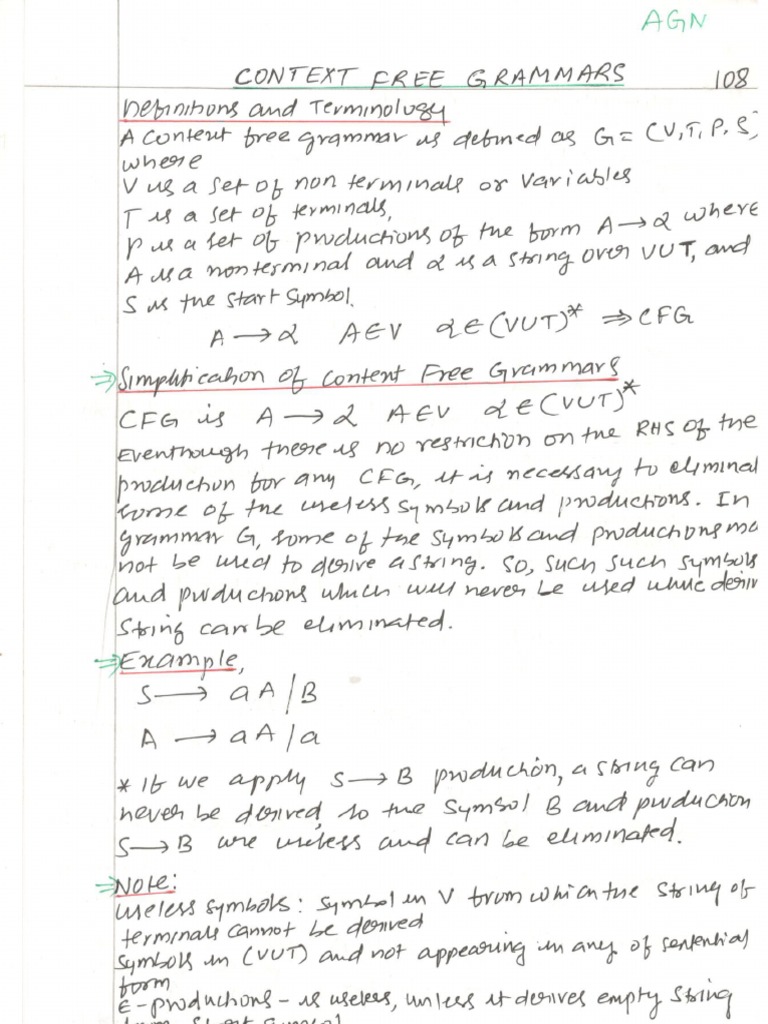 AGN
CONTEXT FREE GRAMMARS 108
Definitions and Terminology
A Context free grammar is defined as G = (V, T, P, S)
where
V is a set of non terminals or variables
T is a set of terminals,
P is a set of productions of the form A → α where
A is a nonterminal and α is a string over VUT, and
S is the start symbol.
A → α A∈V α∈(VUT)* ⇒ CFG
⇒ Simplification of Context Free Grammars
CFG is A → α A∈V α∈(VUT)*
Eventhough there is no restriction on the RHS of the
production for any CFG, it is necessary to eliminat
some of the useless symbols and productions. In
grammar G, some of the symbols and productions ma
not be used to derive a string. So, such such symbols
and productions which will never be used while deriv
string can be eliminated.
⇒ Example,
S → aA/B
A → aA/a
* If we apply S → B production, a string can
never be derived, so the symbol B and production
S → B are useless and can be eliminated.
⇒ Note:
Useless symbols: Symbol in V from which the string of
terminals cannot be derived
Symbols in (VUT) and not appearing in any of sentential
form
ε-productions - is useless, unless it derives empty string
from start symbol